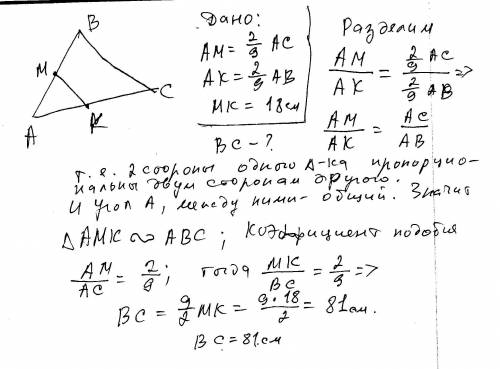 B
M
A
K
C
Дано:
AM = 2/9 AC
AK = 2/9 AB
MK = 18 см
BC - ?
Разделим
AM/AK = (2/9 AC)/(2/9 AB) =>
AM/AK = AC/AB
т.е. 2 стороны одного Δ-ка пропорцио-
нальны двум сторонам другого.
И угол A, между ними - общий. Значит
Δ AMK ∾ ABC; Коэффициент подобия
AM/AC = 2/9; тогда MK/BC = 2/9 =>
BC = 9/2 MK = 9·18/2 = 81 см.
BC = 81 см